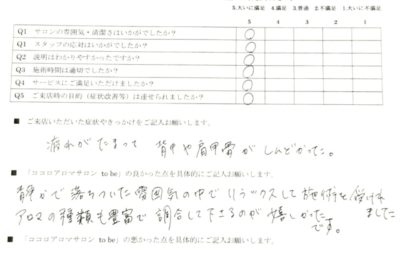 5.大いに満足 4.満足 3.普通 2.不満足 1.大いに不満足
5 4 3 2 1
Q1 サロンの雰囲気・清潔さはいかがでしたか? ○
Q1 スタッフの応対はいかがでしたか? ○
Q2 説明はわかりやすかったですか? ○
Q3 施術時間は適切でしたか? ○
Q4 サービスにご満足いただけましたか? ○
Q5 ご来店時の目的(症状改善等)は達せられましたか? ○
■ ご来店いただいた症状やきっかけをご記入お願いします。
疲れがたまって 背中や肩甲骨がしんどかった。
■ 「ココロアロマサロン to be」の良かった点を具体的にご記入お願いします。
静かで落ちついた雰囲気の中でリラックスして施術を受けれました
アロマの種類も豊富で調合して下さるのが嬉しかったです。
■ 「ココロアロマサロン to be」の悪かった点を具体的にご記入お願いします。